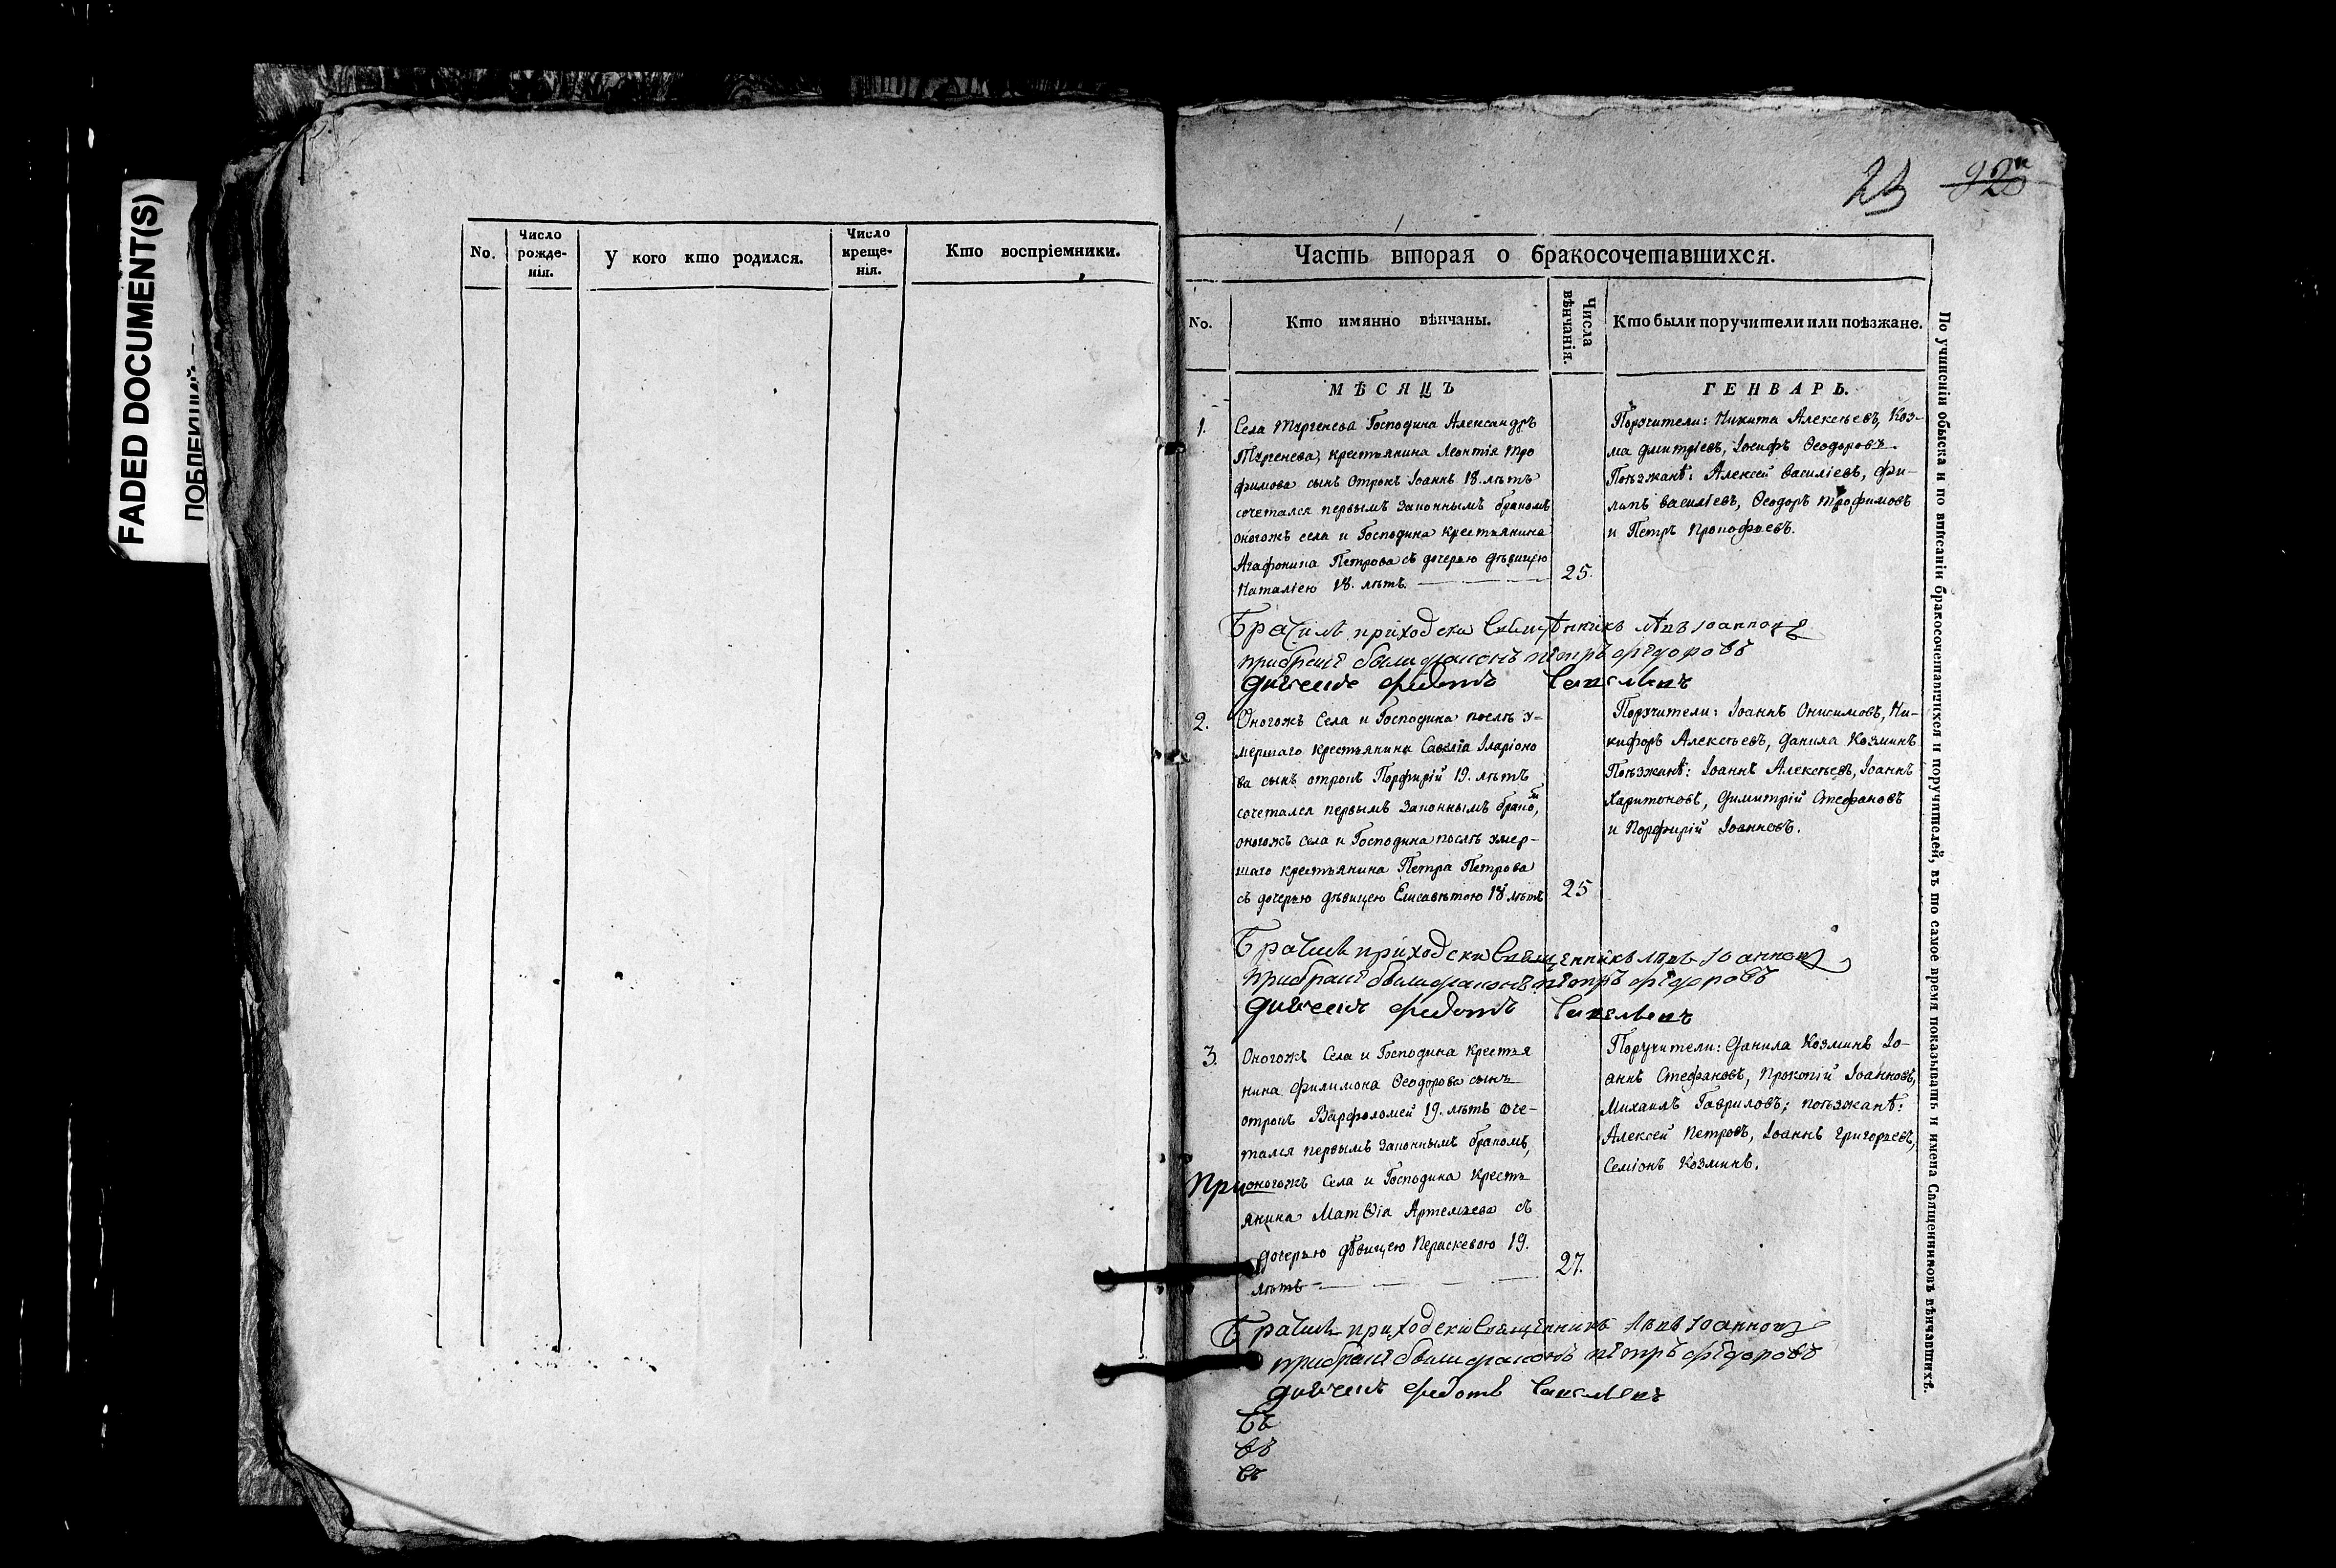 FADED DOCUMENT(S)
No.
Число рожде-нія.
У кого кто родился.
Число креще-нія.
Кто воспріемники.
Часть вторая о бракосочетавшихся.
No.
Кто имянно вѣнчаны.
Числа вѣнчанія.
Кто были поручители или поѣзжане.
МѢСЯЦЪ
ГЕНВАРЬ.
1.
Села Тургенева Господина Александръ
Тургенева, крестьянина Леонтія Тро
фимова сынъ отрокъ Іоаннъ 18. лѣтъ
сочетался первымъ законнымъ бракомъ
оногожъ села и Господина крестьянина
Агафонина Петрова съ дочерью дѣвицею
Наталіею 18. лѣтъ.
25.
Поручители: Никита Алексѣевъ, Коз-
ма Дмитріевъ, Іосифъ Ѳеодоровъ
Поѣзжанѣ: Алексей Василіевъ, Фи-
липъ Василіевъ, Ѳеодоръ Трофимовъ
и Петръ Прокофьевъ.
приходски
были диаконъ петръ федоровъ
2.
Оногожъ Села и Господина послѣ у-
мершаго крестьянина Савелія Іларіоно
ва сынъ отрокъ Порфирій 19. лѣтъ
сочетался первымъ законнымъ брако,мъ
оногожъ села и Господина послѣ умер-
шаго крестьянина Петра Петрова
съ дочерью дѣвицею Елисаветою 18 лѣтъ
25
Поручители: Іоаннъ Онисимовъ, Ни-
кифоръ Алексѣевъ, Данила Козминъ
Поѣзжанѣ: Іоаннъ Алексѣевъ, Іоаннъ
Харитоновъ, Димитрій Стефановъ
и Порфирій Іоанновъ.
приходски
были диаконъ петръ федоровъ
3.
Оногожъ Села и Господина крестья
нина Филимона Ѳеодорова сынъ
отрокъ Варфоломей 19. лѣтъ соче-
тался первымъ законнымъ бракомъ,
При
оногожъ Села и Господина кресть
янина Матѳіа Артемьева съ
дочерью дѣвицею Пераскевою 19.
лѣтъ
27.
Поручители: Данила Козминъ Іо-
аннъ Стефановъ, Прокопій Іоанновъ,
Михаилъ Гавриловъ; поѣзжанѣ:
Алексей Петровъ, Іоаннъ Григорьевъ,
Семіонъ Козминъ.
приходски
были диаконъ петръ федоровъ
По учиненіи обыска и по вписаніи бракосочетавшихся и поручителей, въ то самое время показывать и имена Священниковъ вѣнчавшихъ.